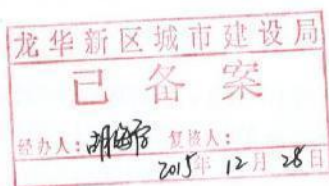 龙华新区城市建设局
已备案
经办人：胡海 复核人：
2015年12月28日